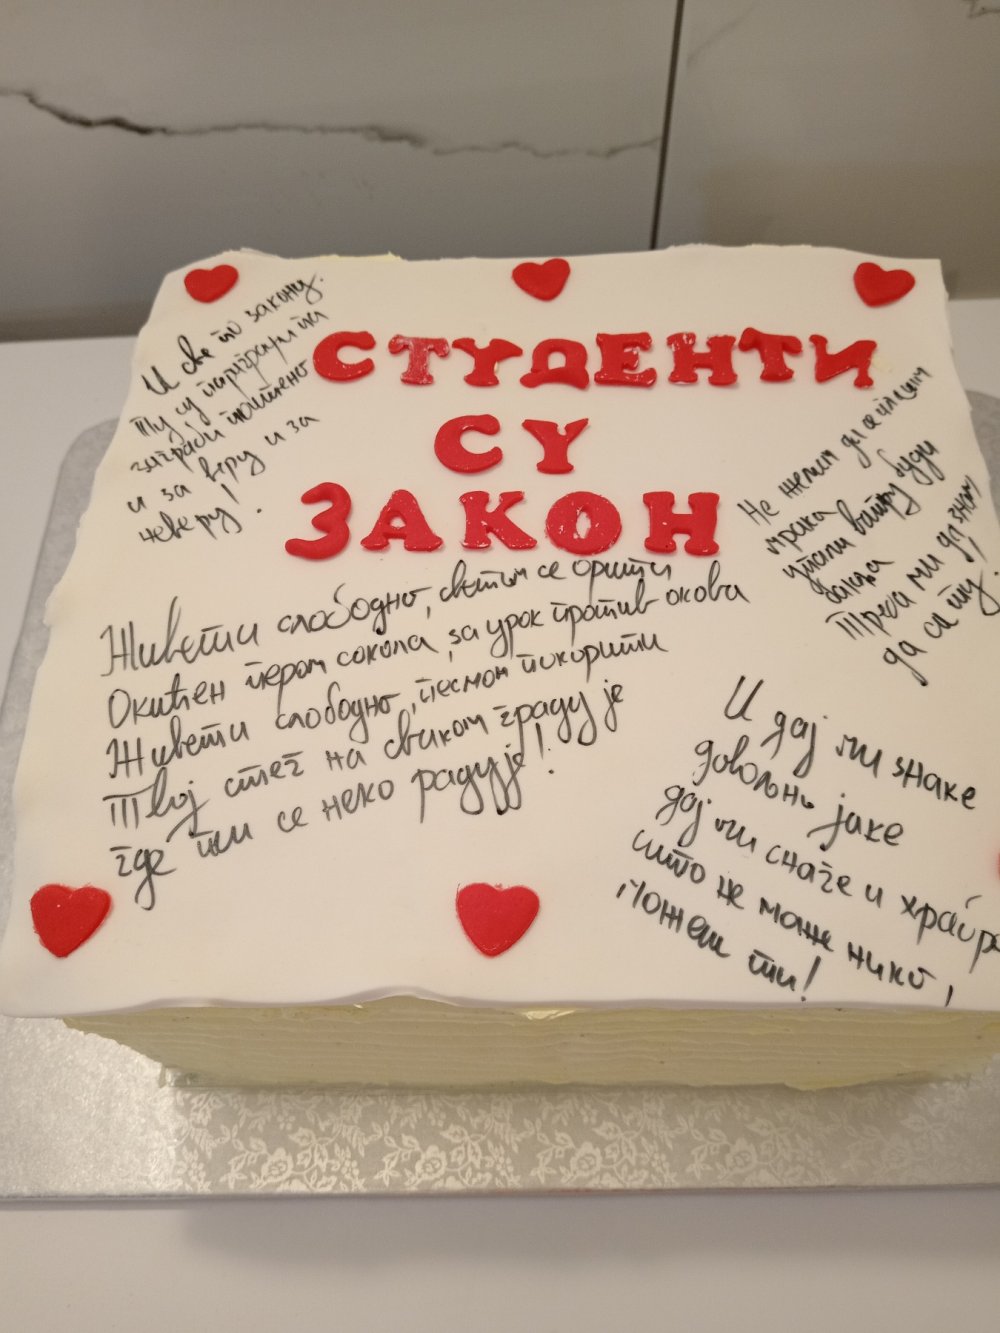 И све по закону.
Ту су партрарита
заиграј поштено
и за веру и за
неверу!
СТУДЕНТИ
СУ
ЗАКОН
Не желим да се плашим
мрака
упали ватру буди
бакља
Треба ми да знам
да си ту.
Живети слободно, светом се орити
Окићен пером сокола, за урок против окова
Живети слободно, песмом покорити
Твој стег на сваком граду је
где ти се неко радује!
И дај ми знаке
довољно јаке
дај ми снаге и храбро
што не може нико,
можеш ти!